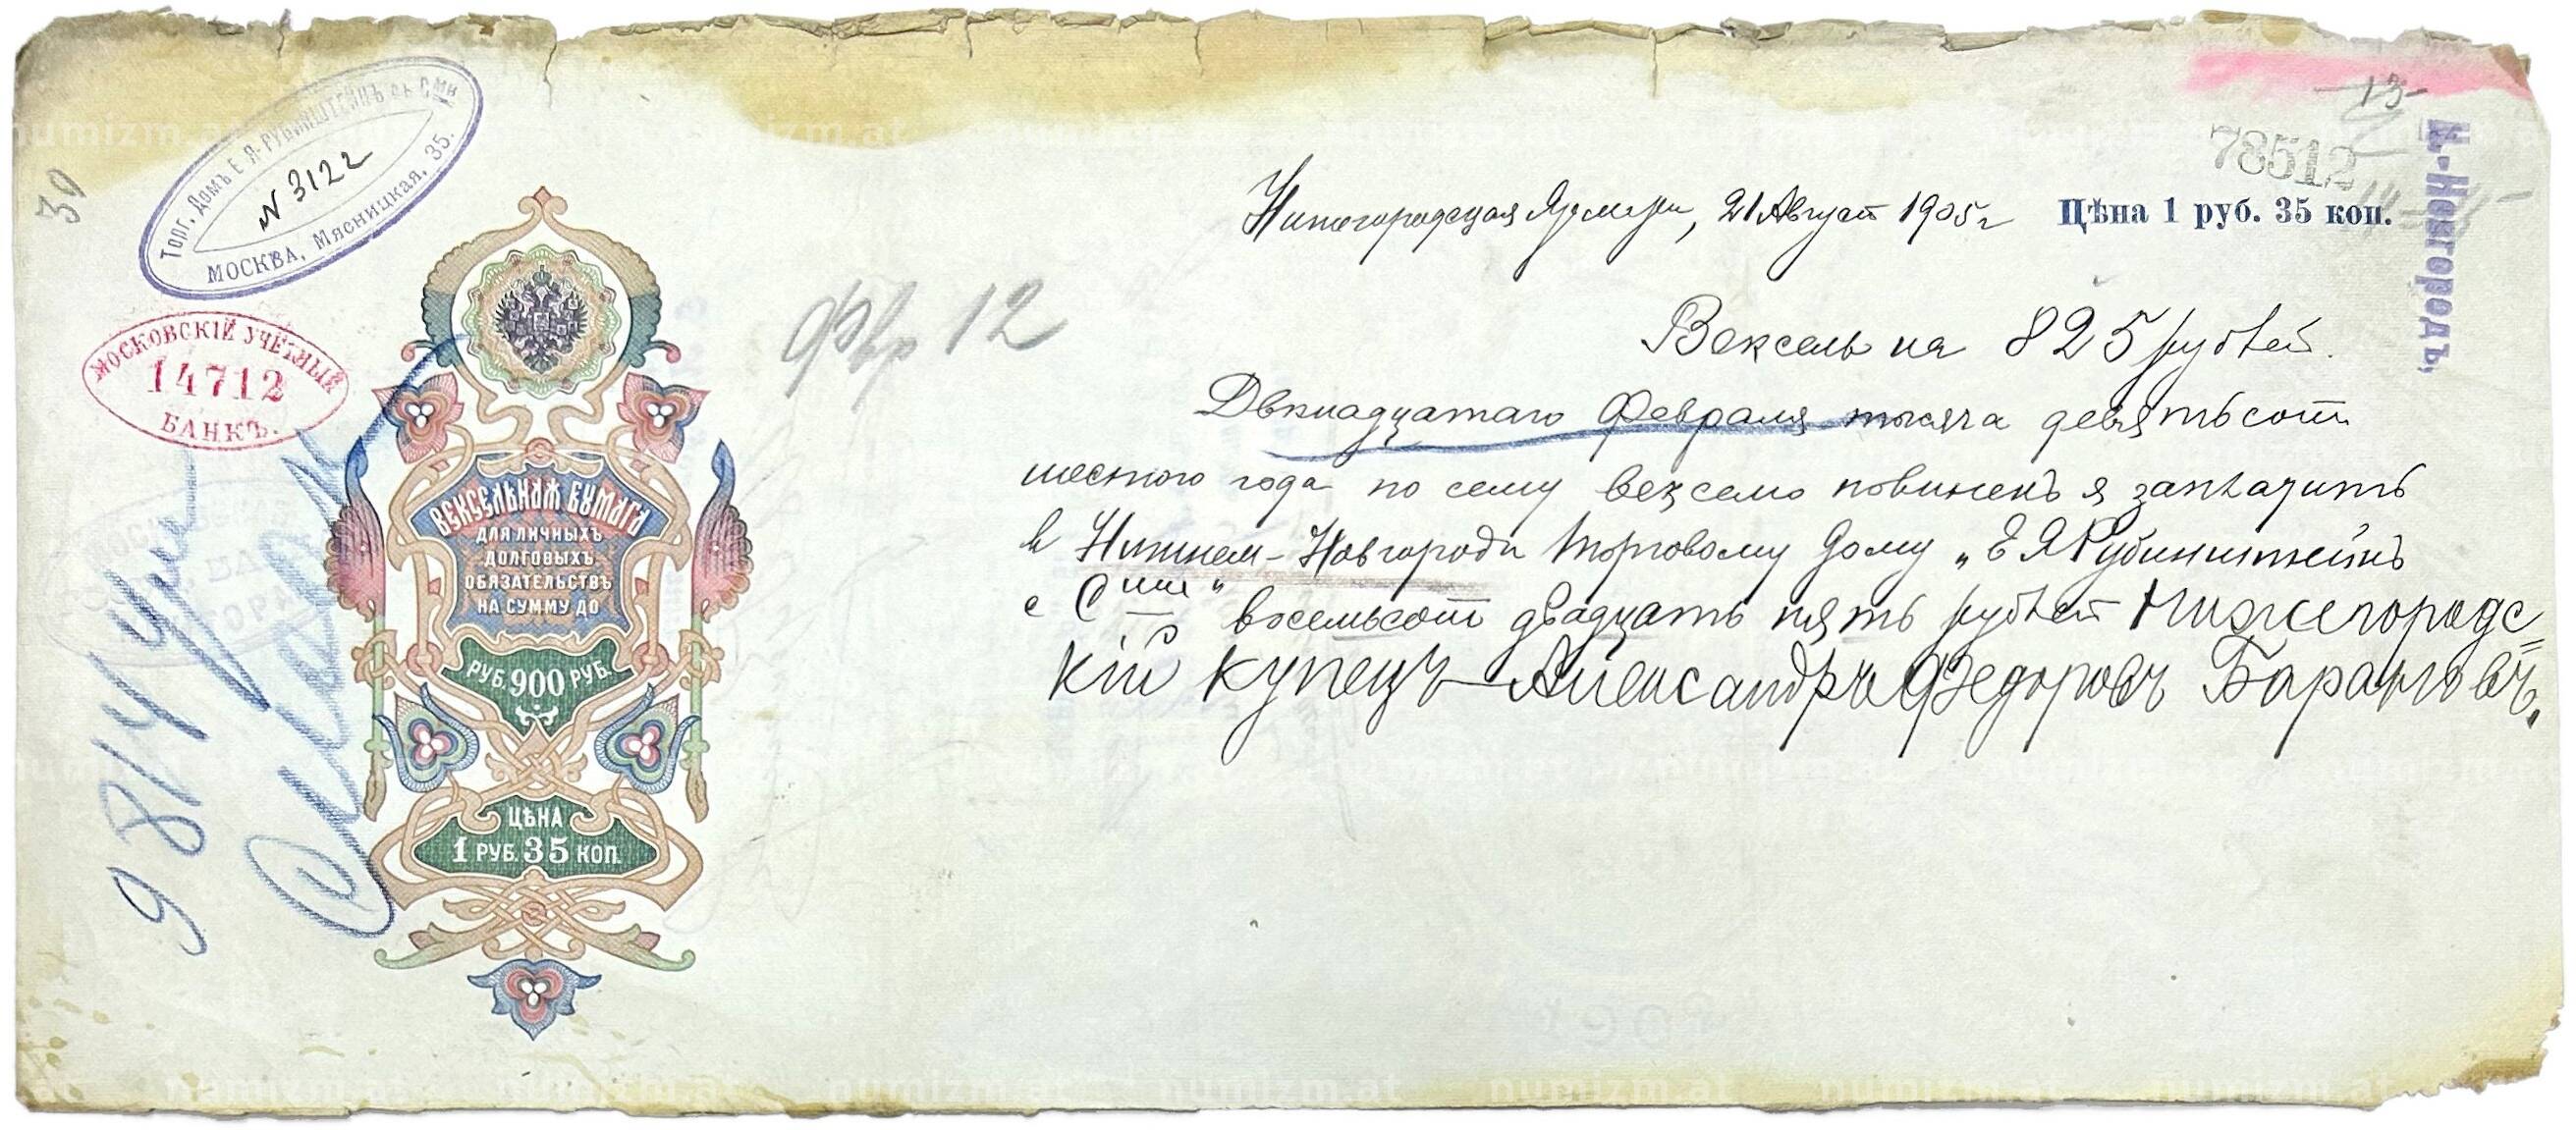 30
Торг. Домъ Е. Я. РУБИНШТЕЙНЪ съ Сми
N 3122
МОСКВА, Мясницкая, 35.
МОСКОВСКІЙ УЧЕТНЫЙ
14712
БАНКЪ.
9814
Фвр 12
ВЕКСЕЛЬНАЯ БУМАГА
ДЛЯ ЛИЧНЫХЪ
ДОЛГОВЫХЪ
ОБЯЗАТЕЛЬСТВЪ
НА СУММУ ДО
РУБ. 900 РУБ.
ЦѢНА
1 РУБ. 35 КОП.
13-
78512
Н.-Новгородъ,
Цѣна 1 руб. 35 коп.
Нижегородская Ярмарка, 21 Август 1905 г
Вексель на 825 рублей.
Двѣнадцатаго Февраля тысяча девятьсот
шестого года по сему векселю повиненъ я заплатить
в Нижнем-Новгороде торговому дому „Е Я Рубинштейнъ
с Сми“ восемьсот двадцать пять рублей Нижегородс=
кій купецъ Александръ Федоровъ Барановъ.
numizm.at